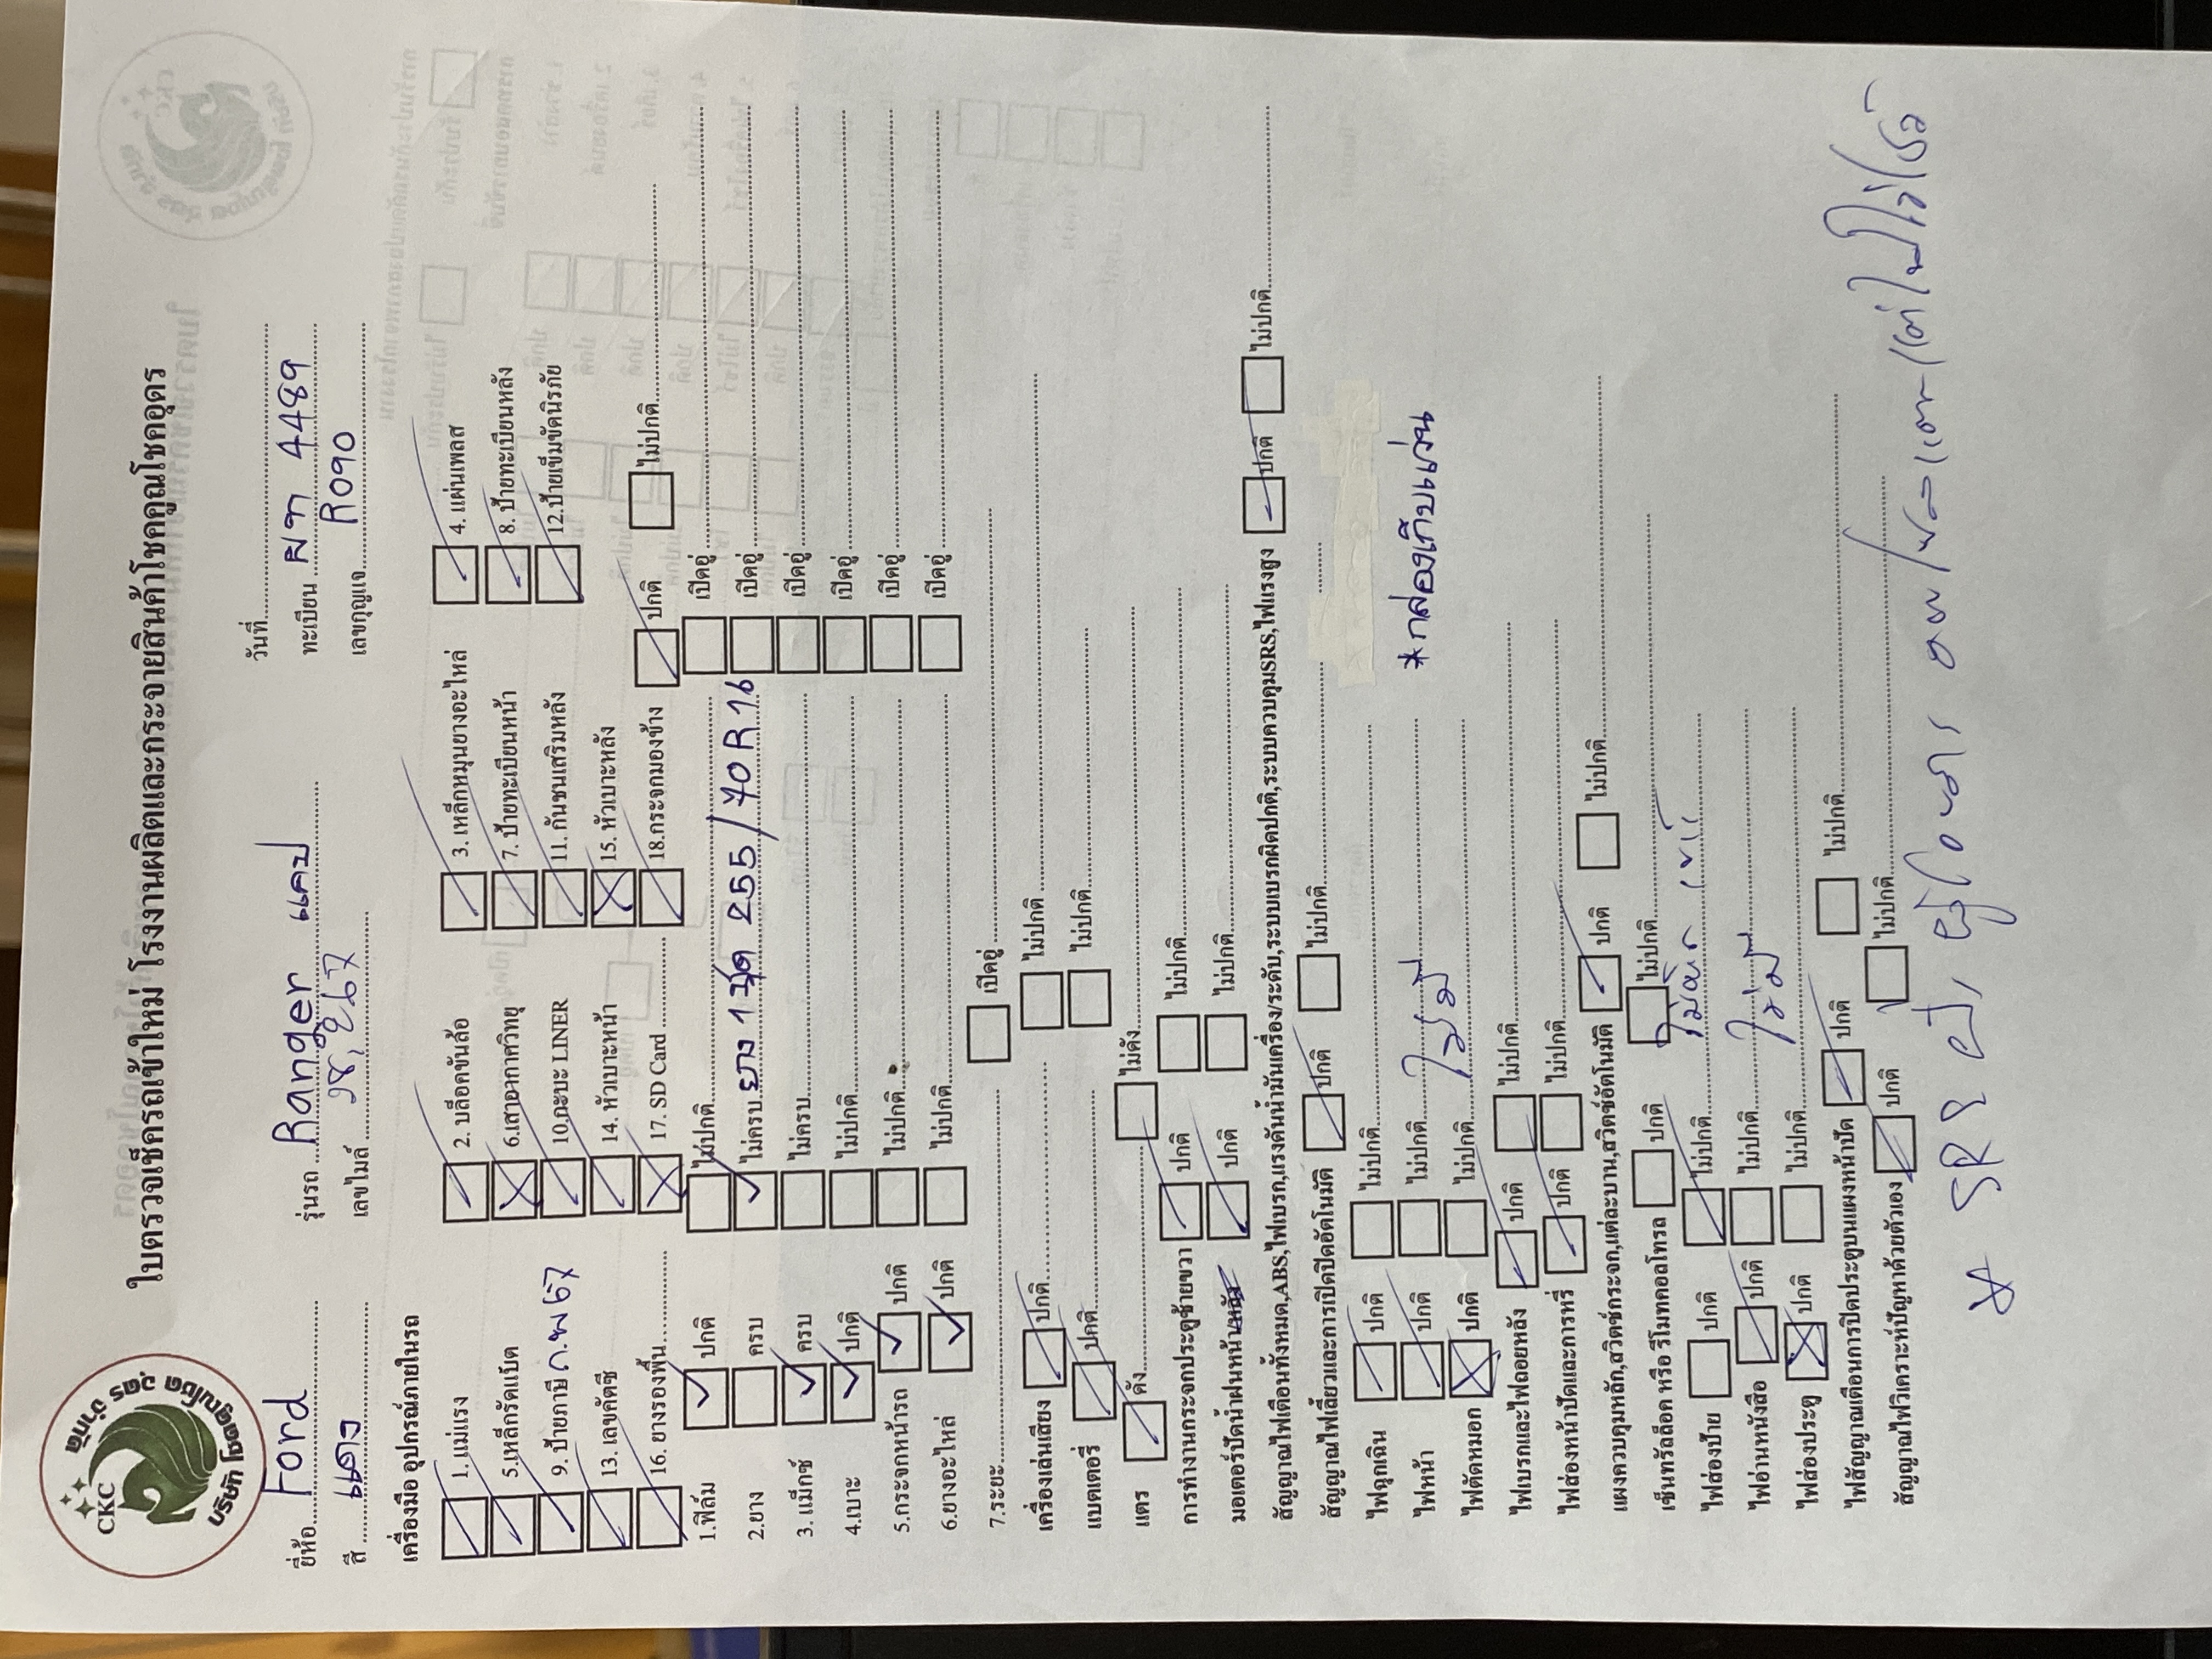 CKC
บริษัท โชคคูณโชค อุดร จำกัด
ใบตรวจเช็ครถเข้าใหม่ โรงงานผลิตและกระจายสินค้าโชคคูณโชคอุดร
วันที่
ยี่ห้อ Ford รุ่นรถ Ranger แคป ทะเบียน ผท 4489
สี แดง เลขไมล์ เลขกุญแจ R090
เครื่องมือ อุปกรณ์ภายในรถ
1.แม่แรง 2. บล็อคขันล้อ 3. เหล็กหมุนยางอะไหล่ 4. แผ่นเพลส
5.เหล็กรัดแบ็ต 6.เสาอากาศวิทยุ 7. ป้ายทะเบียนหน้า 8. ป้ายทะเบียนหลัง
9. ป้ายภาษี ก.พ 67 10.กะบะ LINER 11. กันชนเสริมหลัง 12.ป้ายเข็มขัดนิรภัย
13. เลขคัตซี 14. หัวเบาะหน้า 15. หัวเบาะหลัง
16. ยางรองพื้น 17. SD Card 18.กระจกมองข้าง ปกติ ไม่ปกติ
1.ฟิล์ม ปกติ ไม่ปกติ เปิดอยู่
2.ยาง ครบ ไม่ครบ ยาง 1 ชุด 255/70R16 เปิดอยู่
3. แม็กซ์ ครบ ไม่ครบ เปิดอยู่
4.เบาะ ปกติ ไม่ปกติ เปิดอยู่
5.กระจกหน้ารถ ปกติ ไม่ปกติ เปิดอยู่
6.ยางอะไหล่ ปกติ ไม่ปกติ เปิดอยู่
7.ระยะ เปิดอยู่
เครื่องเล่นเสียง ปกติ ไม่ปกติ
แบตเตอรี่ ปกติ ไม่ปกติ
แตร ดัง ไม่ดัง
การทำงานกระจกประตูซ้ายขวา ปกติ ไม่ปกติ
มอเตอร์ปัดน้ำฝนหน้าหลัง ปกติ ไม่ปกติ
สัญญาณไฟเตือนทั้งหมด,ABS,ไฟเบรก,แรงดันน้ำมันเครื่อง/ระดับ,ระบบเบรกผิดปกติ,ระบบควบคุมSRS,ไฟแรงสูง ปกติ ไม่ปกติ
สัญญาณไฟเลี้ยวและการเปิดปิดอัตโนมัติ ปกติ ไม่ปกติ
ไฟฉุกเฉิน ปกติ ไม่ปกติ
ไฟหน้า ปกติ ไม่ปกติ *กล่องเก็บแว่น
ไฟตัดหมอก ปกติ ไม่ปกติ ไม่มี
ไฟเบรกและไฟถอยหลัง ปกติ ไม่ปกติ
ไฟส่องหน้าปัดและการหรี่ ปกติ ไม่ปกติ
แผงควบคุมหลัก,สวิตซ์กระจก,แต่ละบาน,สวิตซ์อัตโนมัติ ปกติ ไม่ปกติ
เซ็นทรัลล็อค หรือ รีโมทคอลโทรล ปกติ ไม่ปกติ
ไฟส่องป้าย ปกติ ไม่ปกติ
ไฟอ่านหนังสือ ปกติ ไม่ปกติ
ไฟส่องประตู ปกติ ไม่ปกติ ไม่มี
ไฟสัญญาณเตือนการปิดประตูบนแผงหน้าปัด ปกติ ไม่ปกติ
สัญญาณไฟวิเคราะห์ปัญหาด้วยตัวเอง ปกติ ไม่ปกติ
* SRS